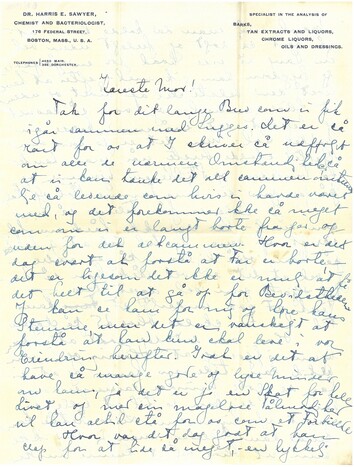 DR. HARRIS E. SAWYER,
CHEMIST AND BACTERIOLOGIST,
176 FEDERAL STREET,
BOSTON, MASS., U. S. A.
TELEPHONES
4280 MAIN.
DORCHESTER.
SPECIALIST IN THE ANALYSIS OF
BARKS,
TAN EXTRACTS AND LIQUORS,
CHROME LIQUORS,
OILS AND DRESSINGS.
Kæreste Mor!
Tak for dit lange Brev som vi fik
igår sammen med Det er så
rart for os at I skriver så udførligt
om alle de nærmere så
at vi kan tænke det alt sammen
så levende som hvis vi havde været
med; og det forekommer ikke så meget
som om vi er langt borte fra jer og
uden for det altsammen. Hvor er det
dog svært at forstå at far er borte
det er ligesom det ikke er muligt at få
det helt til at gå op for Bevidstheden
I kan se ham for mig og høre hans
Stemme, men det er vanskeligt at
forstå at han kun skal leve i vor
Erindring herefter. Trøst er det at
have så mange gode og lyse minder
om ham, ja det er jo en Skat for hele
livet, og mer en mageløs
vil han altid stå for os som et
Hvor var det dog godt at han
slap for at lide så meget; en lykkelig